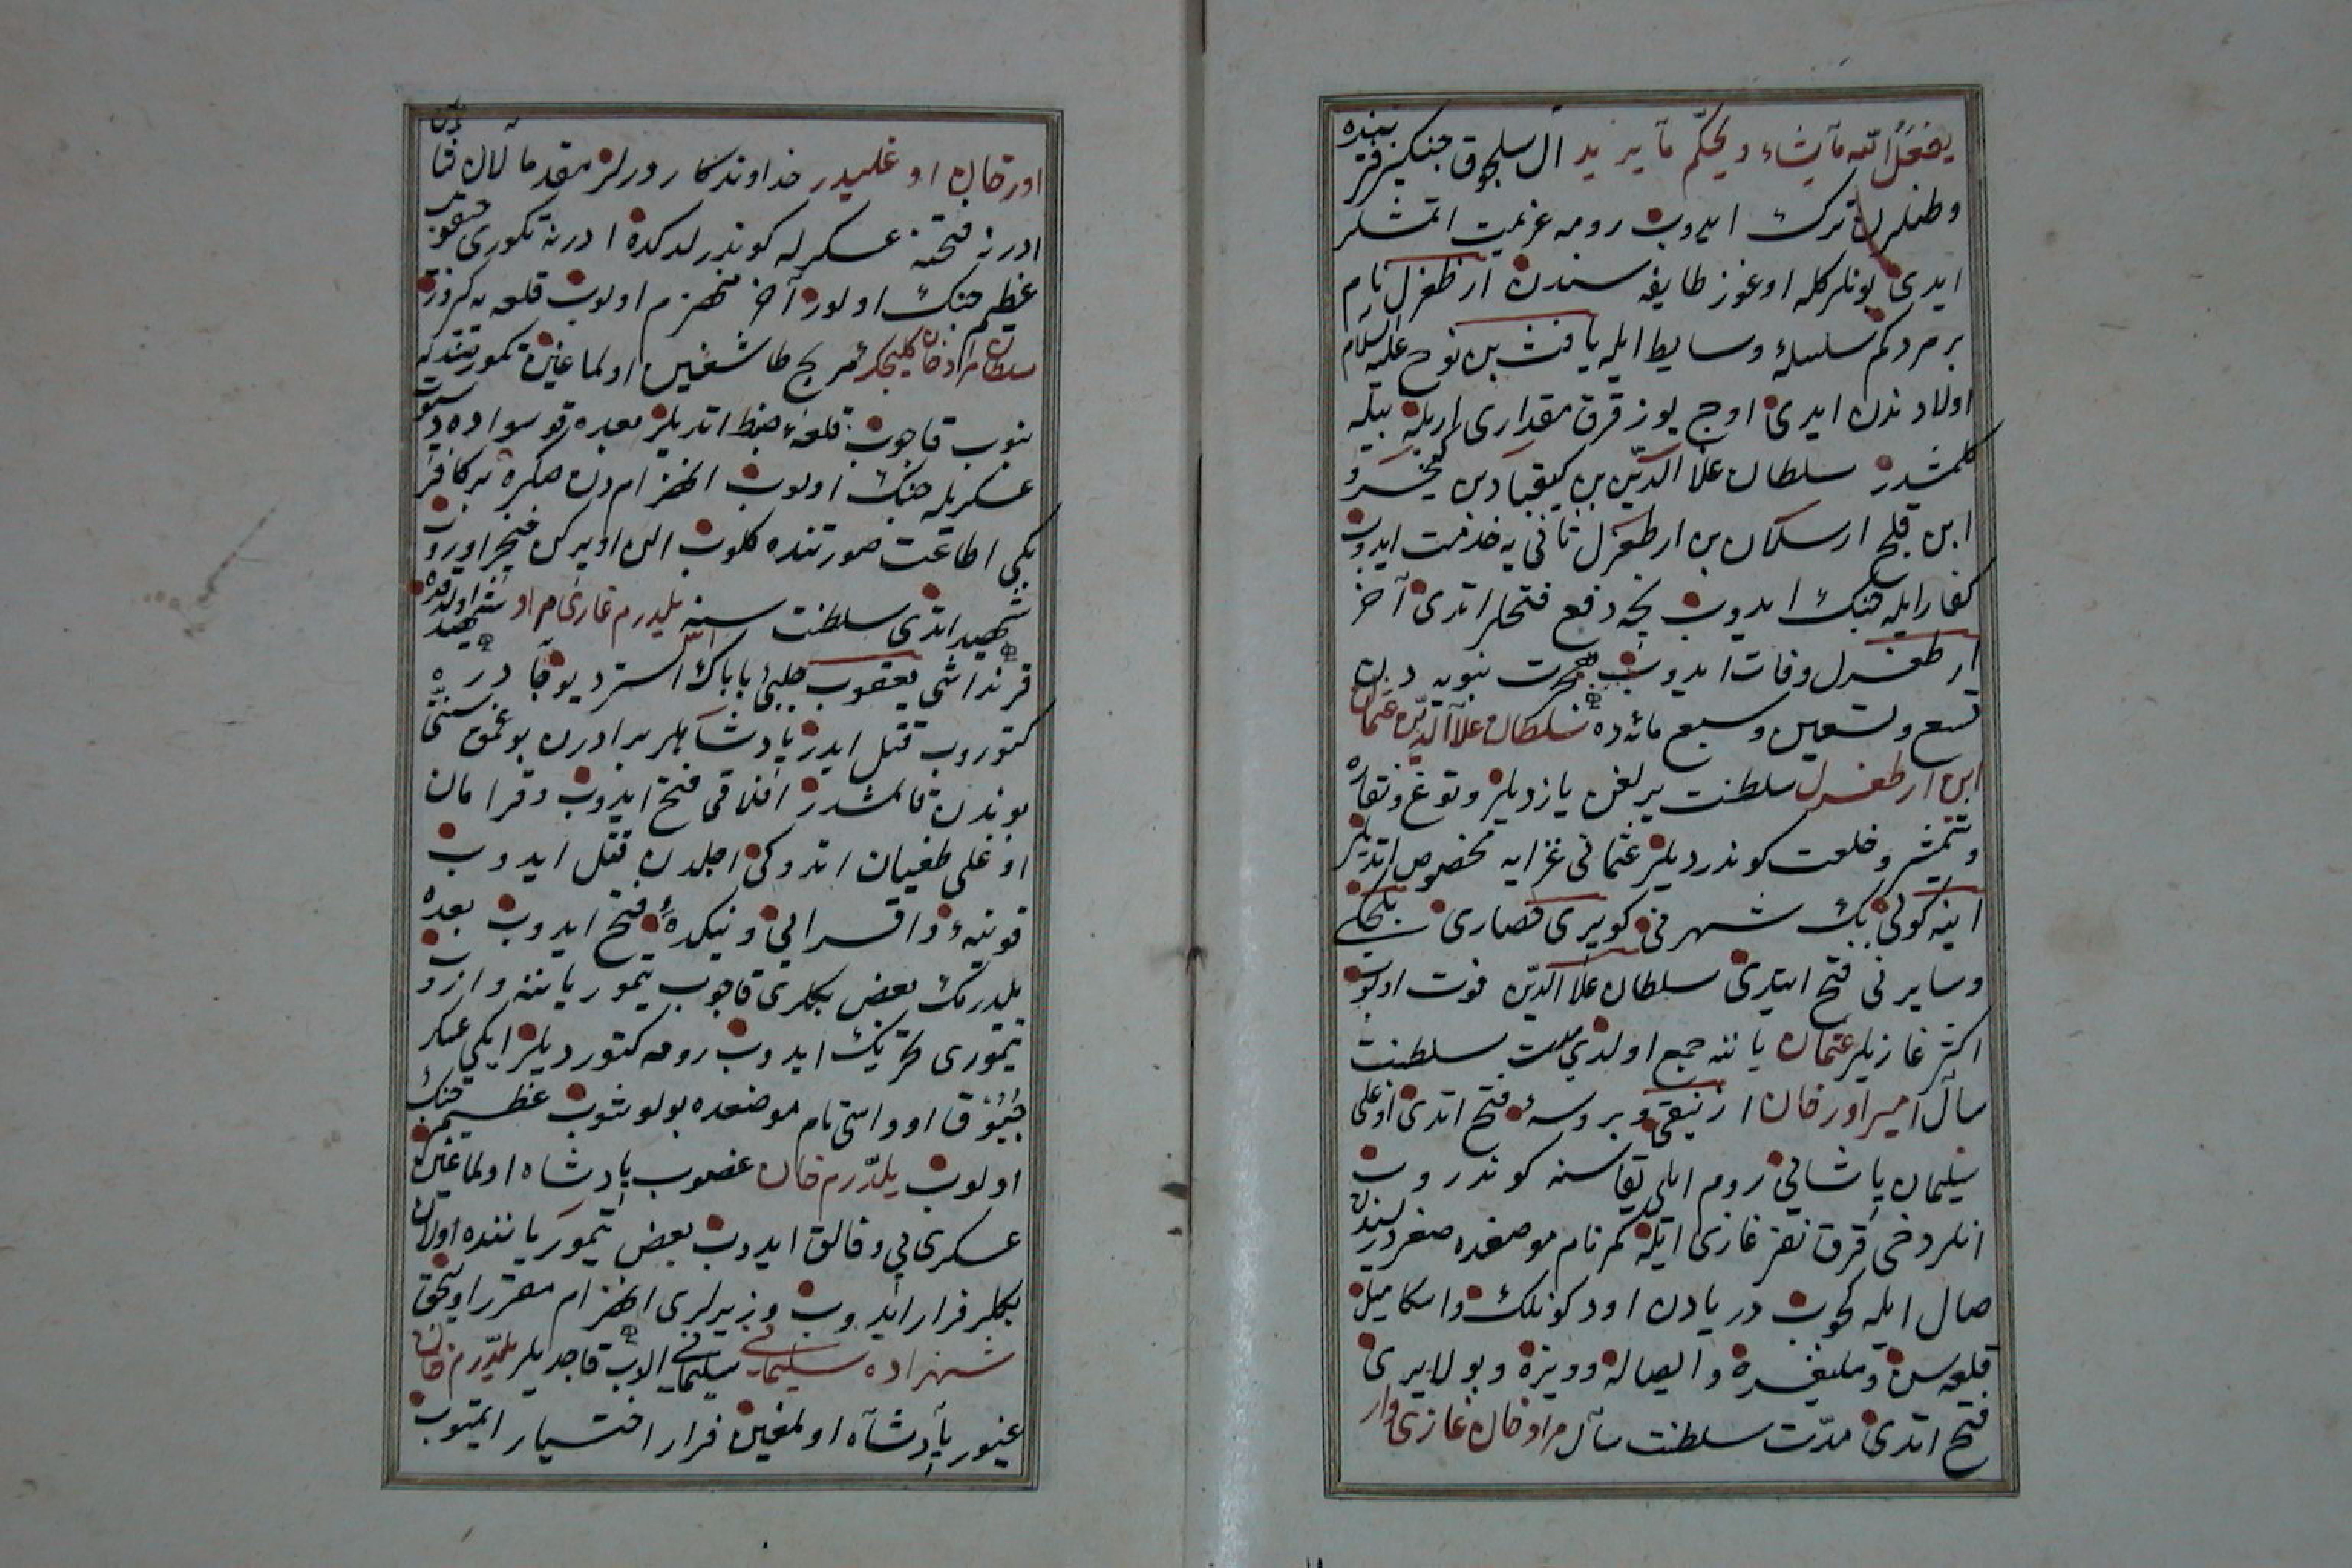 يفعل الله ما يشاء ويحكم ما يريد آل سلجوق جنكيز فترتنده
وطنلرن ترك ايدوب رومه عزيمت اتمشلر
ايدى بونلركله اوغوز طايفه سندن ارطغرل نام
بر مرد كم سلسلهٔ وسايط ايله يافث بن نوح عليه السلام
اولادندن ايدى اوج يوز قرق مقدارى اريله بيله
كلمشدر سلطان علا الدين بن كيقباد بن كيخسرو
ابن قلج ارسلان بن ارطغرل ثانى يه خدمت ايدوب
كفار ايله جنك ايدوب نجه دفع فتحلر اتدى آخر
ارطغرل وفات ايدوب هجرت نبويه دن
تسع وتسعين وسبع مائه ده سلطان علا الدين عثمان
ابن ارطغرل سلطنت يرلغن يازديلر وتوغ ونقاره
وشمشير وخلعت كوندرديلر عثمانى غزايه مخصوص اتديلر
اينه كولى بك شهرنى كوپرى حصارى بيلجكى
وسايرنى فتح ايتدى سلطان علا الدين فوت اولوب
اكثر غازيلر عثمان ياننه جمع اولدى مدت سلطنت
سال امير اورخان ازنيقى وبروسهٔ فتح اتدى اوغلى
سليمان پاشايى روم ايلى يقاسنه كوندروب
انلر دخى قرق نفر غازى ايله كمر نام موضعده صغر دريسندن
صال ايله كچوب دريادن اودكونلك واسكاميل
قلعه سن ومليغره وايصاله وويزه وبولايرى
فتح اتدى مدت سلطنت سال مراد خان غازى وار
اورخان اوغليدر خداوندكار ديرلر مقدما لالا شاهين
ادرنه فتحنه عسكرله كوندرلدكده ادرنه تكورى چيقوب
عظيم جنك اولور آخر منهزم اولوب قلعه يه كيروز
سلطان مراد خان كليجكز مريج طاشغين اولماغين تكور
بنوب قاچوب قلعهٔ ضبط اتديلر بعده قوسواده
عسكريله جنك اولوب انهزامدن صكره بر كافر
بكى اطاعت صورتنده كلوب الن اوپركن خنجر اوروب
شهيد اتدى سلطنت سنه يلدرم غازى مراد شهيد اولدقده
قرنداشى يعقوب چلبى باباك استر ديو
كتوروب قتل ايدر پادشاهلر برادرن بوغمق سنتى
بوندن قالمشدر افلاقى فتح ايدوب وقرامان
اوغلى طغيان اتدوكى اجلدن قتل ايدوب
قونيهٔ واقسرايى ونيكدهٔ فتح ايدوب بعده
يلدرمك بعض بكلرى قاچوب تيمور ياننه واردوب
تيمورى تحريك ايدوب رومه كتورديلر ايكى عسكر
چبوق اوواسى نام موضعده بولوشوب عظيم جنك
اولوب يلدرم خان غضوب پادشاه اولماغين
عسكرى بى وفالق ايدوب بعض تيمور ياننده اولان
بكلر فرار ايدوب وزيرلرى انهزام مقرر اوليجق
شهزاده سليمانى الوب قاجديلر يلدرم خان
غيور پادشاه اولمغين فرار اختيار ايتميوب